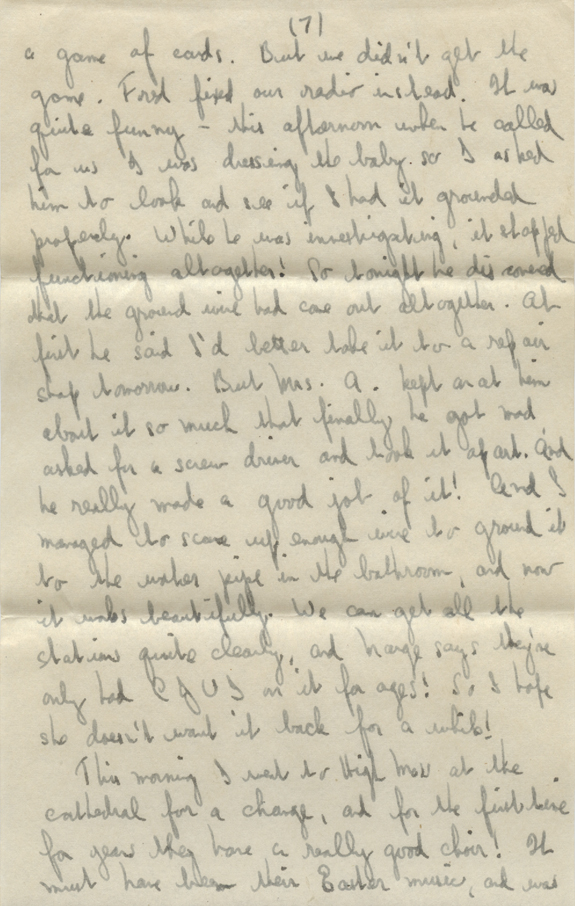 (7)
a game of cards. But we didn't get the
game. Ford fixed our radio instead. It was
quite funny - this afternoon when he called
for us I was dressing the baby so I asked
him to look and see if I had it grounded
properly. While he was investigating, it stopped
functioning altogether! So tonight he discovered
that the ground wire had come out altogether. At
first he said I'd better take it to a repair
shop tomorrow. But Mrs. A. kept on at him
about it so much that finally he got mad
asked for a screw driver and took it apart. And
he really made a good job of it! And I
managed to scare up enough wire to ground it
to the water pipe in the bathroom, and now
it works beautifully. We can get all the
stations quite clearly, and Marge says they're
only had on it for ages! So I hope
she doesn't want it back for a while!
This morning I went to High Mass at the
cathedral for a change, and for the first time
for years they have a really good choir! It
must have been their Easter music, and was